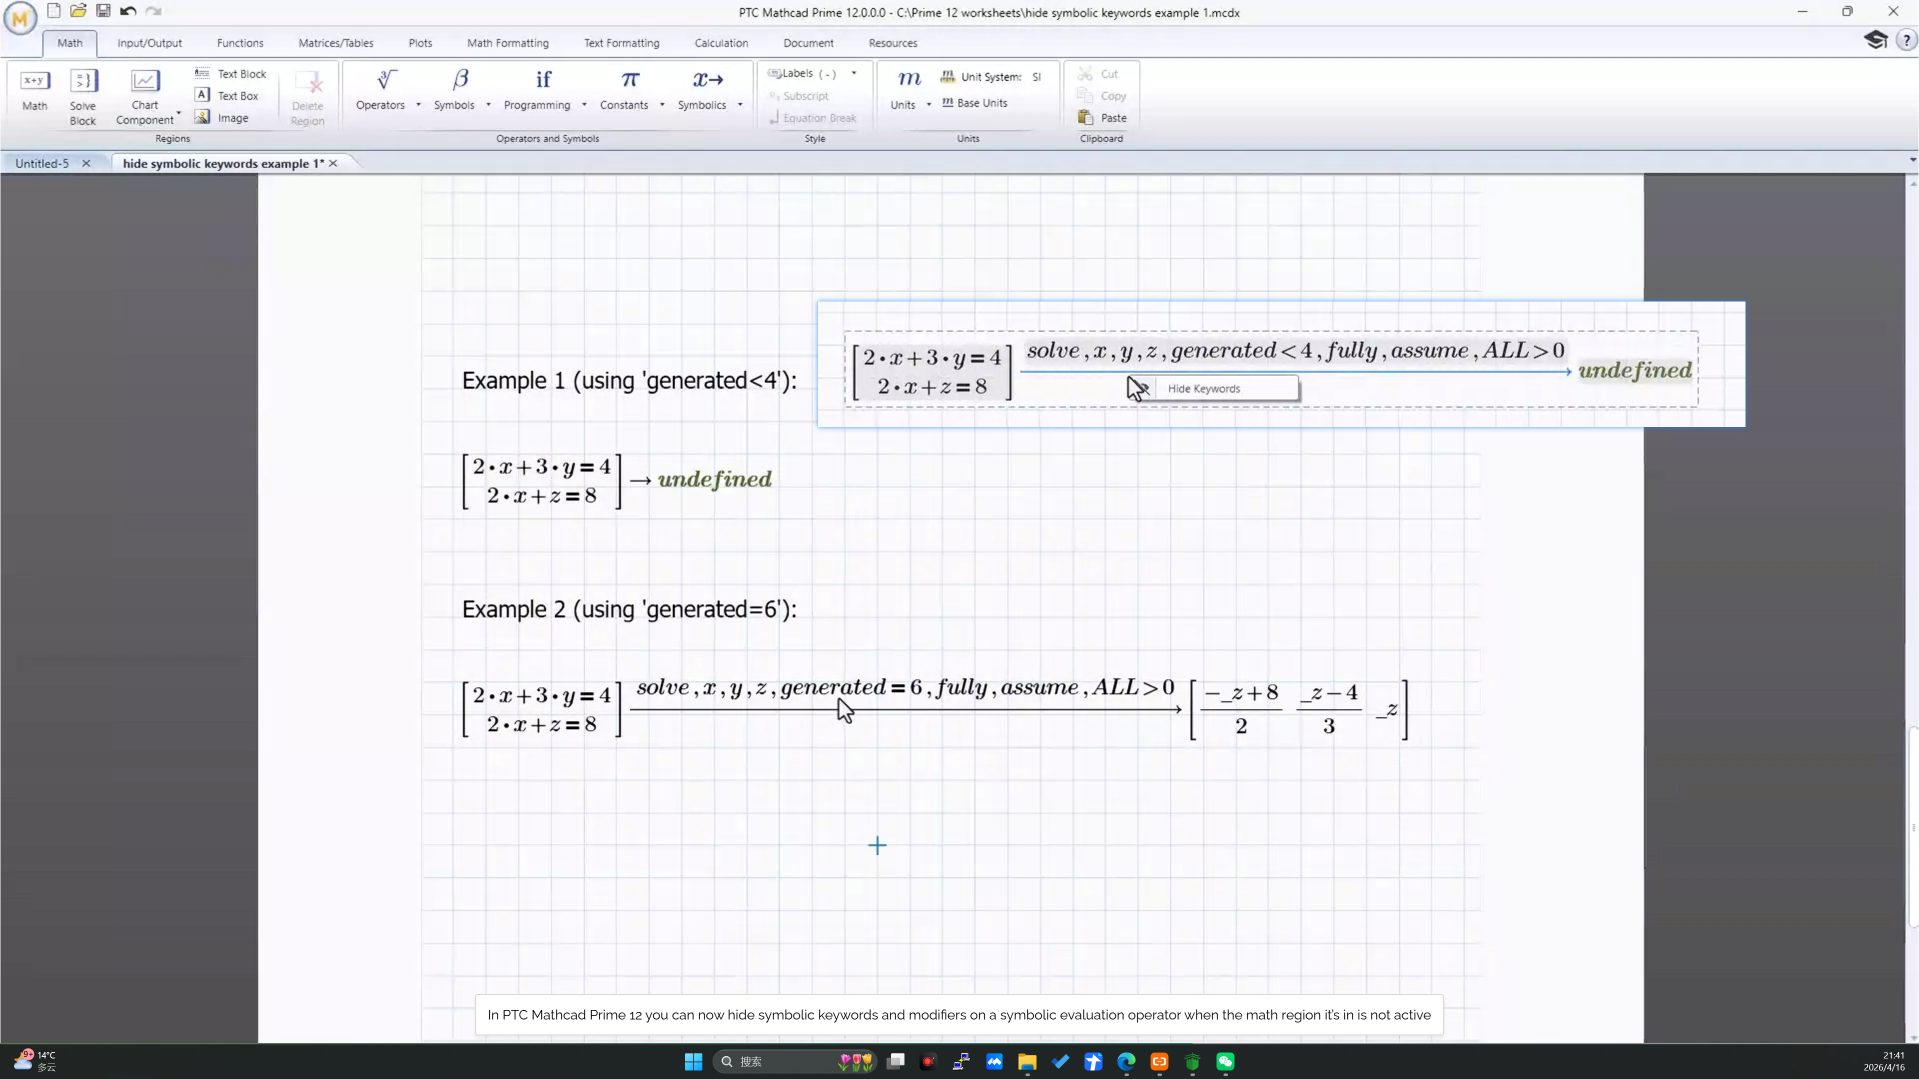 PTC Mathcad Prime 12.0.0.0 - C:\Prime 12 worksheets\hide symbolic keywords example 1.mcdx
Math Input/Output Functions Matrices/Tables Plots Math Formatting Text Formatting Calculation Document Resources
Math
Solve Block
Chart Component
Text Block
Text Box
Image
Delete Region
Regions
Operators
Symbols
if
Programming
π
Constants
Symbolics
Operators and Symbols
Labels ( - )
Subscript
Equation Break
Style
Units
Unit System: SI
Base Units
Units
Cut
Copy
Paste
Clipboard
Untitled-5
hide symbolic keywords example 1*
2·x+3·y=4
2·x+z=8
solve,x,y,z,generated<4,fully,assume,ALL>0
undefined
Hide Keywords
Example 1 (using 'generated<4'):
2·x+3·y=4
2·x+z=8
→ undefined
Example 2 (using 'generated=6'):
2·x+3·y=4
2·x+z=8
solve,x,y,z,generated=6,fully,assume,ALL>0
−_z+8 _z−4 _z
2 3
In PTC Mathcad Prime 12 you can now hide symbolic keywords and modifiers on a symbolic evaluation operator when the math region it's in is not active
14°C
多云
搜索
21:41
2026/4/16